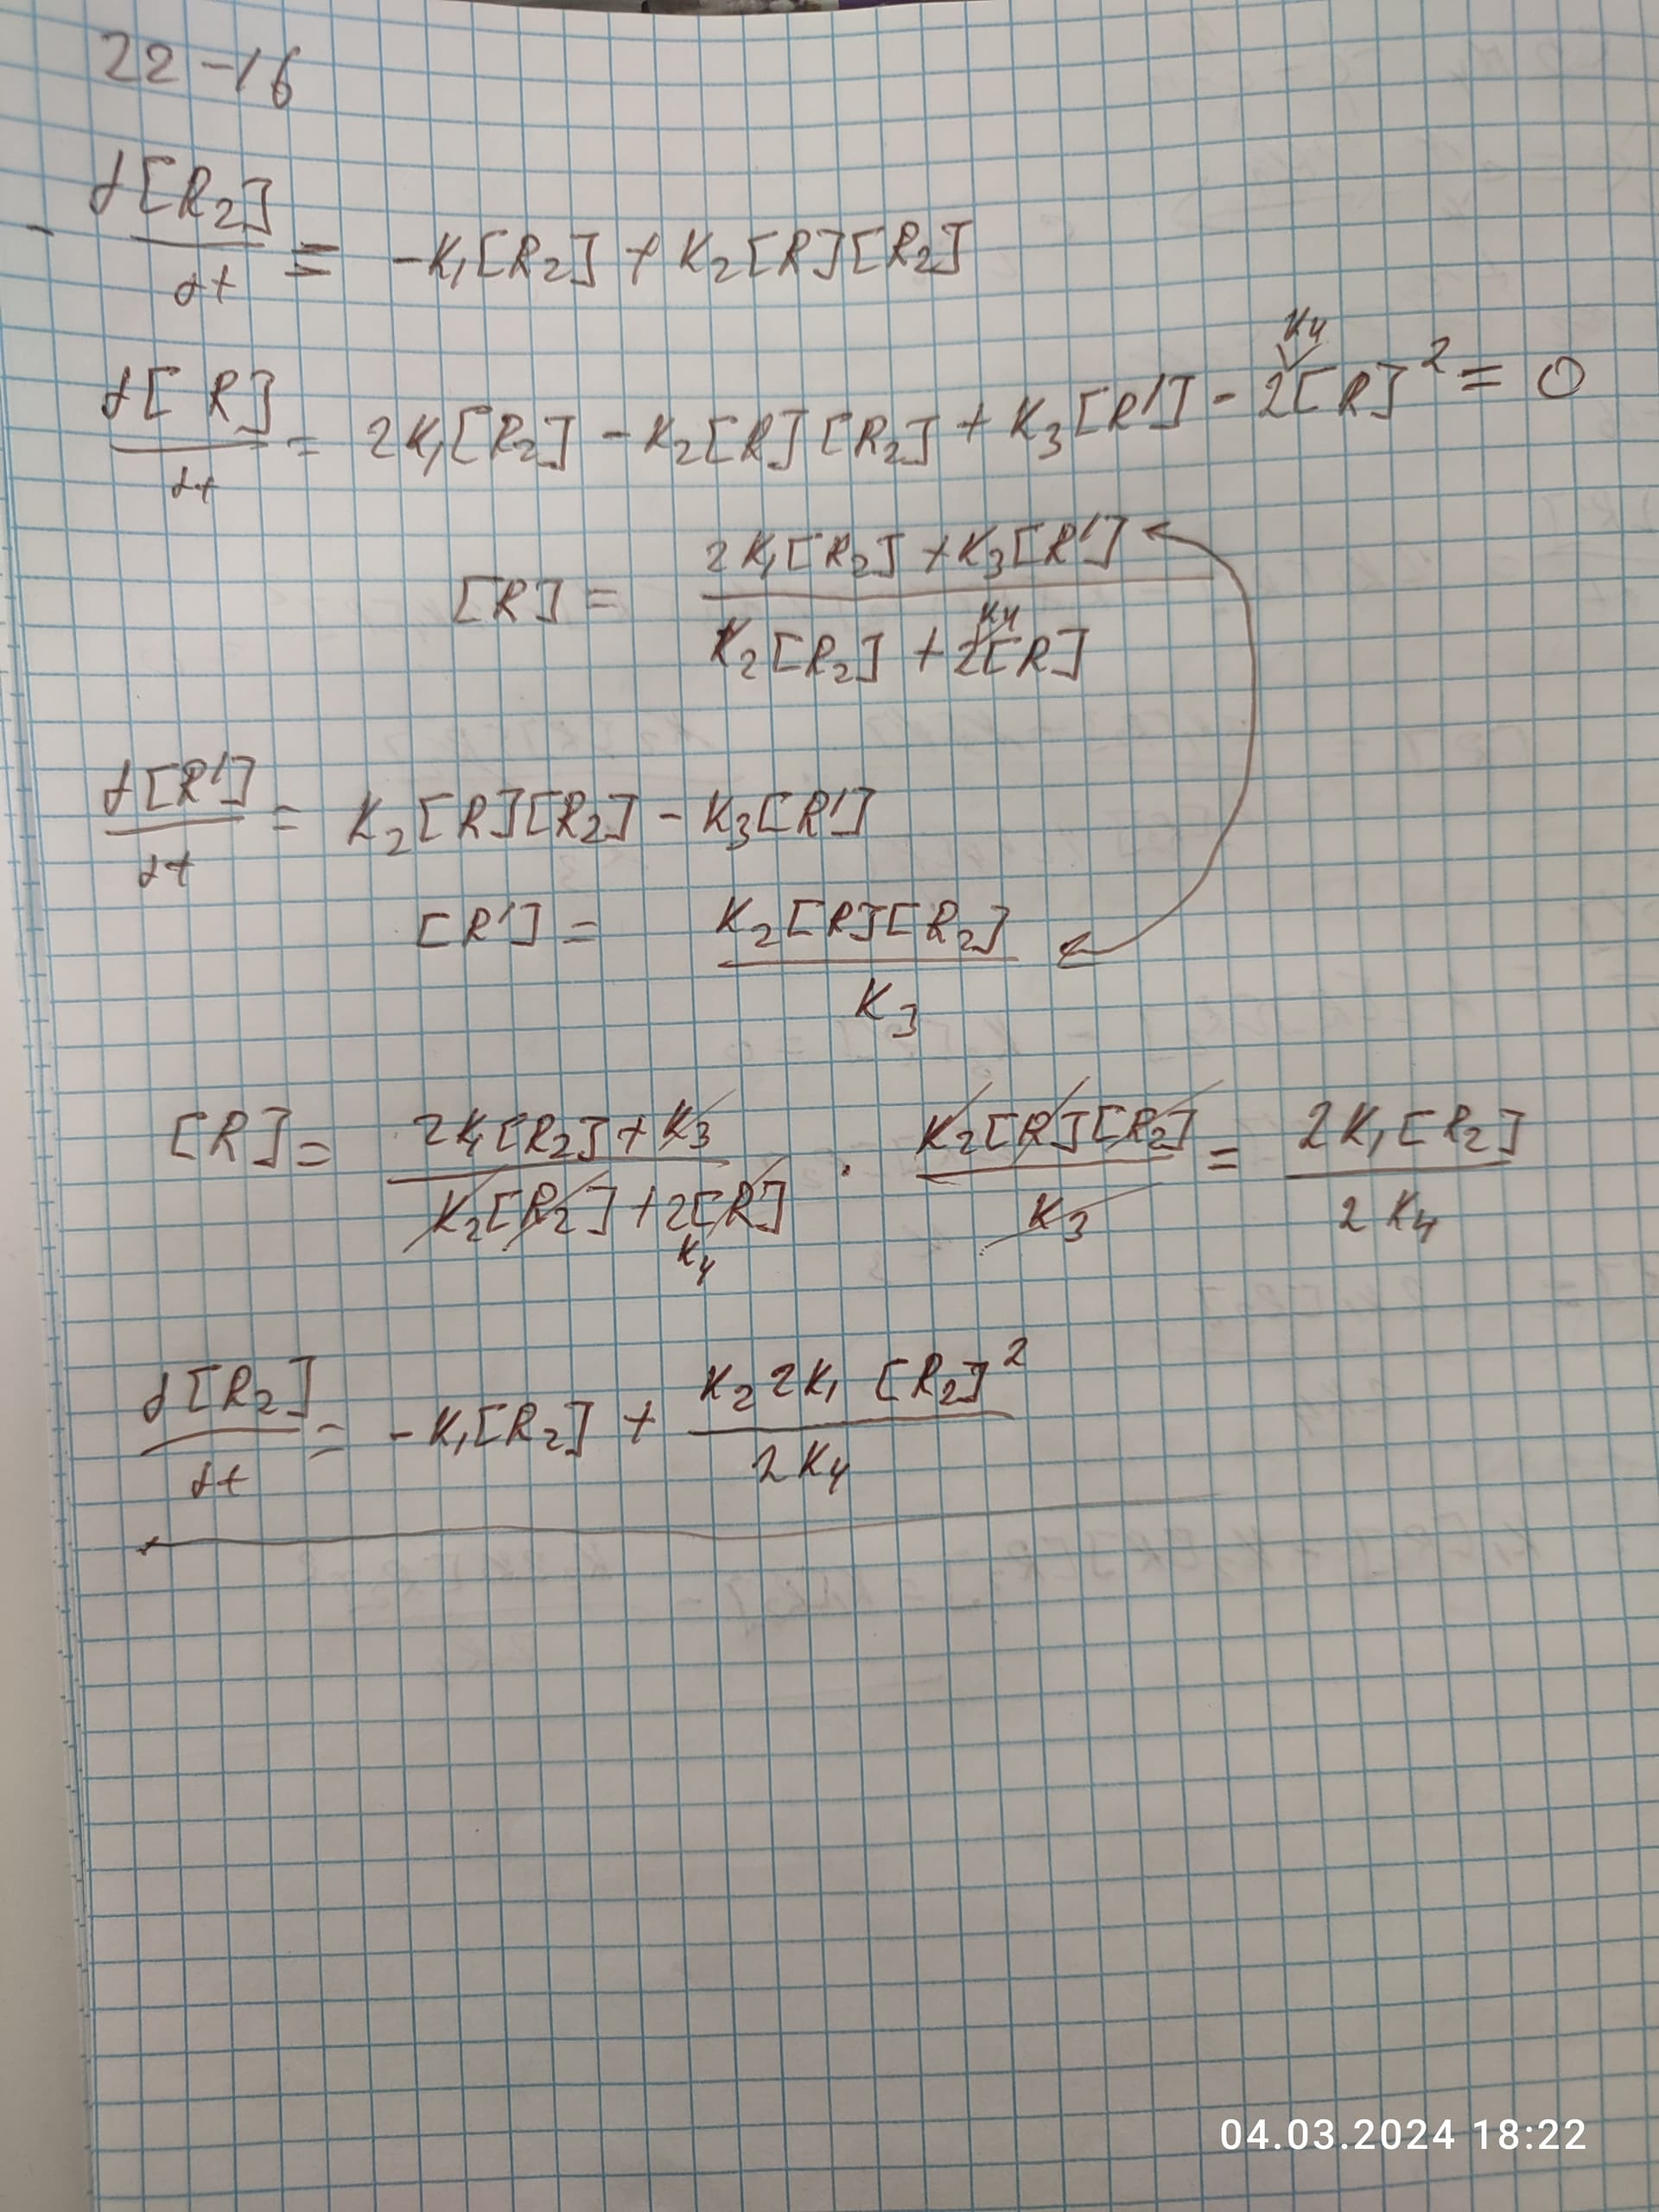 22-16
- d[R₂]/dt = -K₁[R₂] + K₂[R][R₂]
d[R]/dt = 2K₁[R₂] - K₂[R][R₂] + K₃[R'] - 2K₄[R]² = 0
[R] = (2K₁[R₂] + K₃[R']) / (K₂[R₂] + 2K₄[R])
d[R']/dt = K₂[R][R₂] - K₃[R']
[R'] = K₂[R][R₂] / K₃
[R] = (2K₁[R₂] + K₃) / (K₂[R₂] + 2K₄[R]) · K₂[R][R₂] / K₃ = 2K₁[R₂] / 2K₄
d[R₂]/dt = -K₁[R₂] + K₂2K₁[R₂]² / 2K₄
04.03.2024 18:22